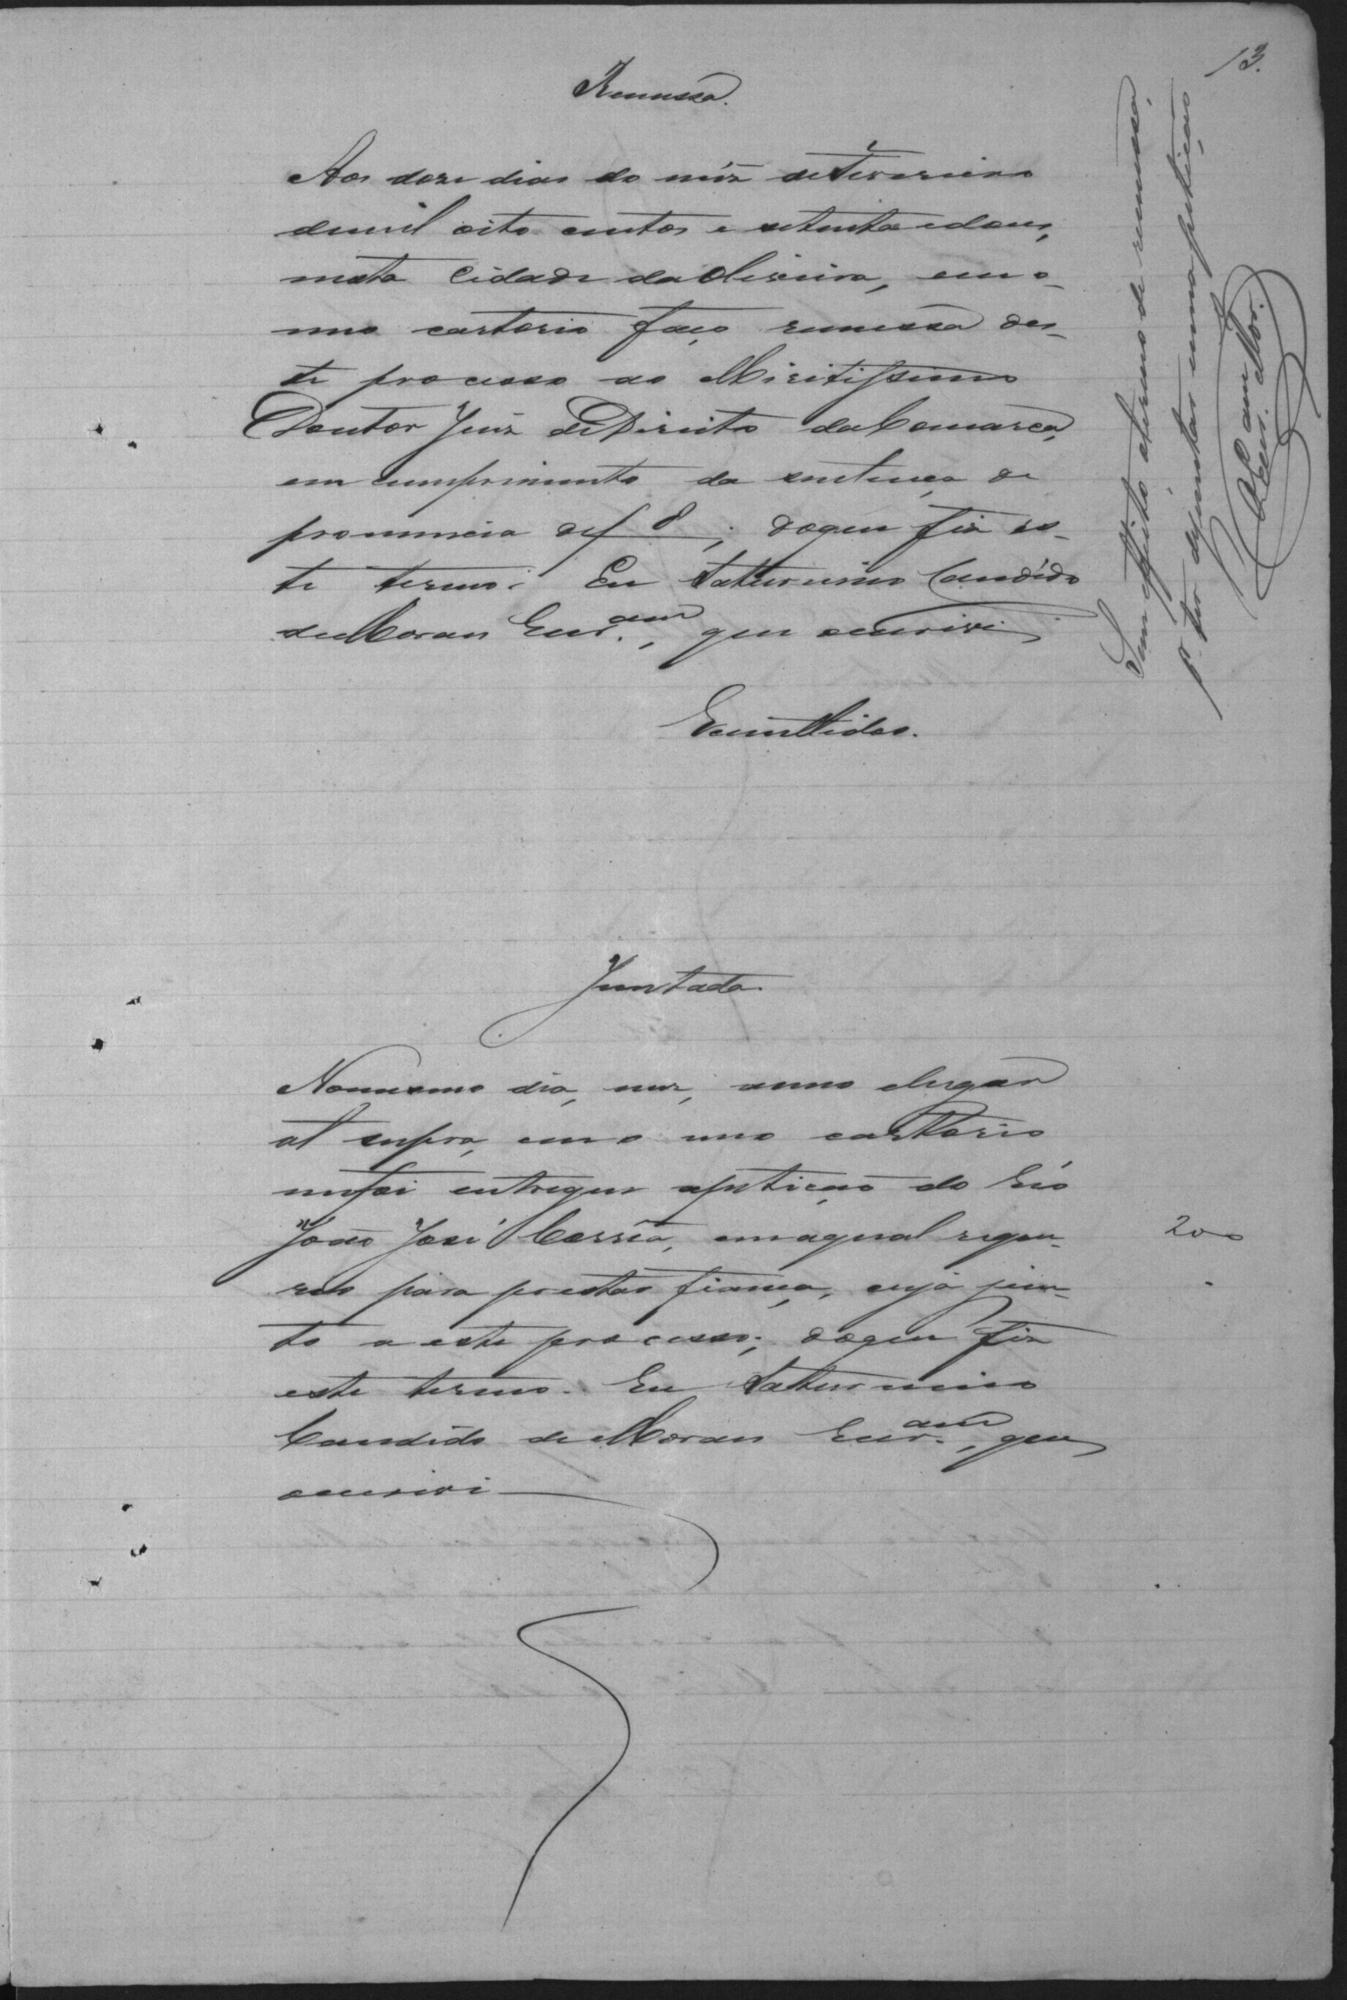 13.
Remessa.
Aos doze dias do mêz de Fevereiro
de mil oito centos e setenta e dous,
nesta Cidade da Oliveira, em o
meu cartorio faço remessa des-
te processo ao Meritissimo
Doutor Juiz de Direito da Comarca,
em cumprimento da sentença de
pronuncia de f 8; do que fiz es-
te termo. Eu Saturnino Candido
de Moraes Escr.am, que escrevi
Remettidos.
Sem effeito o termo de remessa,
p. ter de juntar uma petição
Juntada
No mesmo dia, mez, anno e lugar
al supra, em o meu carttorio
me foi entregue a petição do Réo
João José Corrêa, em a qual reque-
reo para prestar fiança, cuja jun-
to a este processo; do que fiz
este termo. Eu Saturnino
Candido de Moraes Escr.am, que
escrevi
200